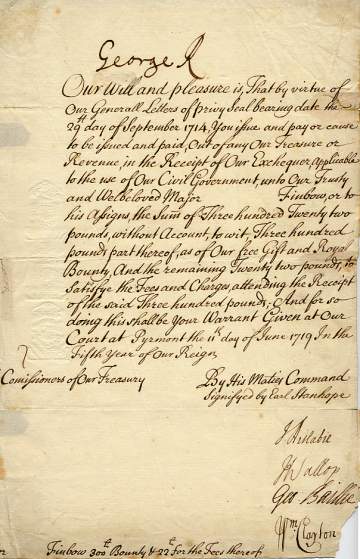 George R
Our Will and pleasure is, That by virtue of
Our Generall Letters of Privy Seal bearing date the
29th day of September 1714, You issue and pay or cause
to be issued and paid, Out of any Our Treasure or
Revenue, in the Receipt of Our Exchequer, applicable
to the use of Our Civil Government, unto Our Trusty
and Welbeloved Major Finbow, or to
his Assigns, the Sum of Three hundred Twenty two
pounds, without Account, to wit, Three hundred
pounds part thereof, as of Our free Gift and Royal
Bounty, And the remaining Twenty two pounds, to
satisfye the Fees and Charges, attending the Receipt
of the said Three hundred pounds, And for so
doing this shall be Your Warrant Given at Our
Court at Pyrmont the 11th day of June 1719 In the
Fifth Year of Our Reign
Comissioners of Our Treasury
By His Mats Command
Signifyed by Earl Stanhope
J Aislabie
J Wallop
Geo Baillie
Wm Clayton
Finbow 300£ Bounty & 22£ for the Fees thereof